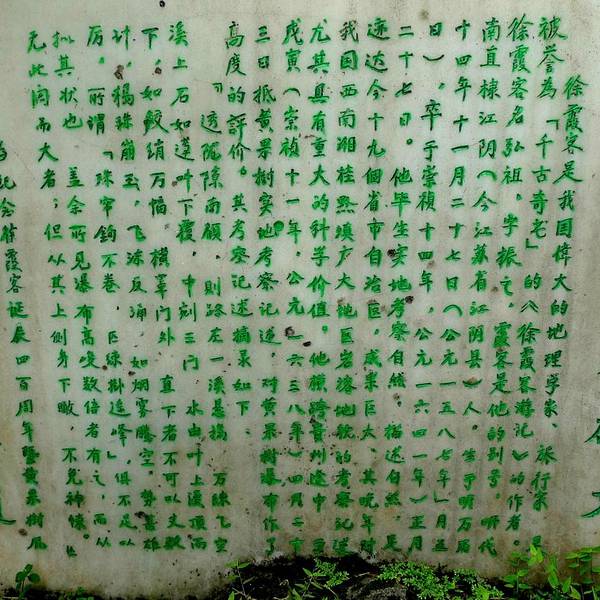 徐霞客是我国偉大的地理学家、旅行家
被誉為「千古奇宅」的《徐霞客游記》的作者。
徐霞客名弘祖，字振之，霞客是他的别号。明代
南直棣江阴（今江苏省江阴县）人。生于明万历
十四年十一月二十七日（公元一五八七年一月五
日），卒于崇禎十四年，公元一六四一年（正月
二十七日。他毕生实地考察自然，描述自然，足
迹达今十九個省市自治區，成果巨大。其晚年对
我国西南湘桂黔滇广大地區岩溶地貌的考察記述
尤其具有重大的科学价值。他横跨貴州途中，
戊寅（崇禎十一年，公元一六三八年）四月二十
三日抵黄果樹实地考察记述，对黄果樹瀑布作了
高度的評价。其考察记述摘录如下：
「透陇隙南顧，則路左一溪悬捣，万練飞空
溪上石如蓮叶下覆，中剜三门，水由叶上漫顶而
下，如鮫绡万幅，横罩门外，直下者不可以丈数
计，搗珠崩玉，飞沫反涌，如烟雾騰空，勢甚雄
厉，所谓「珠帘鈎不卷，匹練掛遥峰」，俱不足以
拟其状也。盖余所见瀑布，高峻数倍者有之，而从
无此闊而大者；但从其上侧身下瞰，不免神悚。」
為紀念徐霞客诞辰四百周年暨黄果樹风